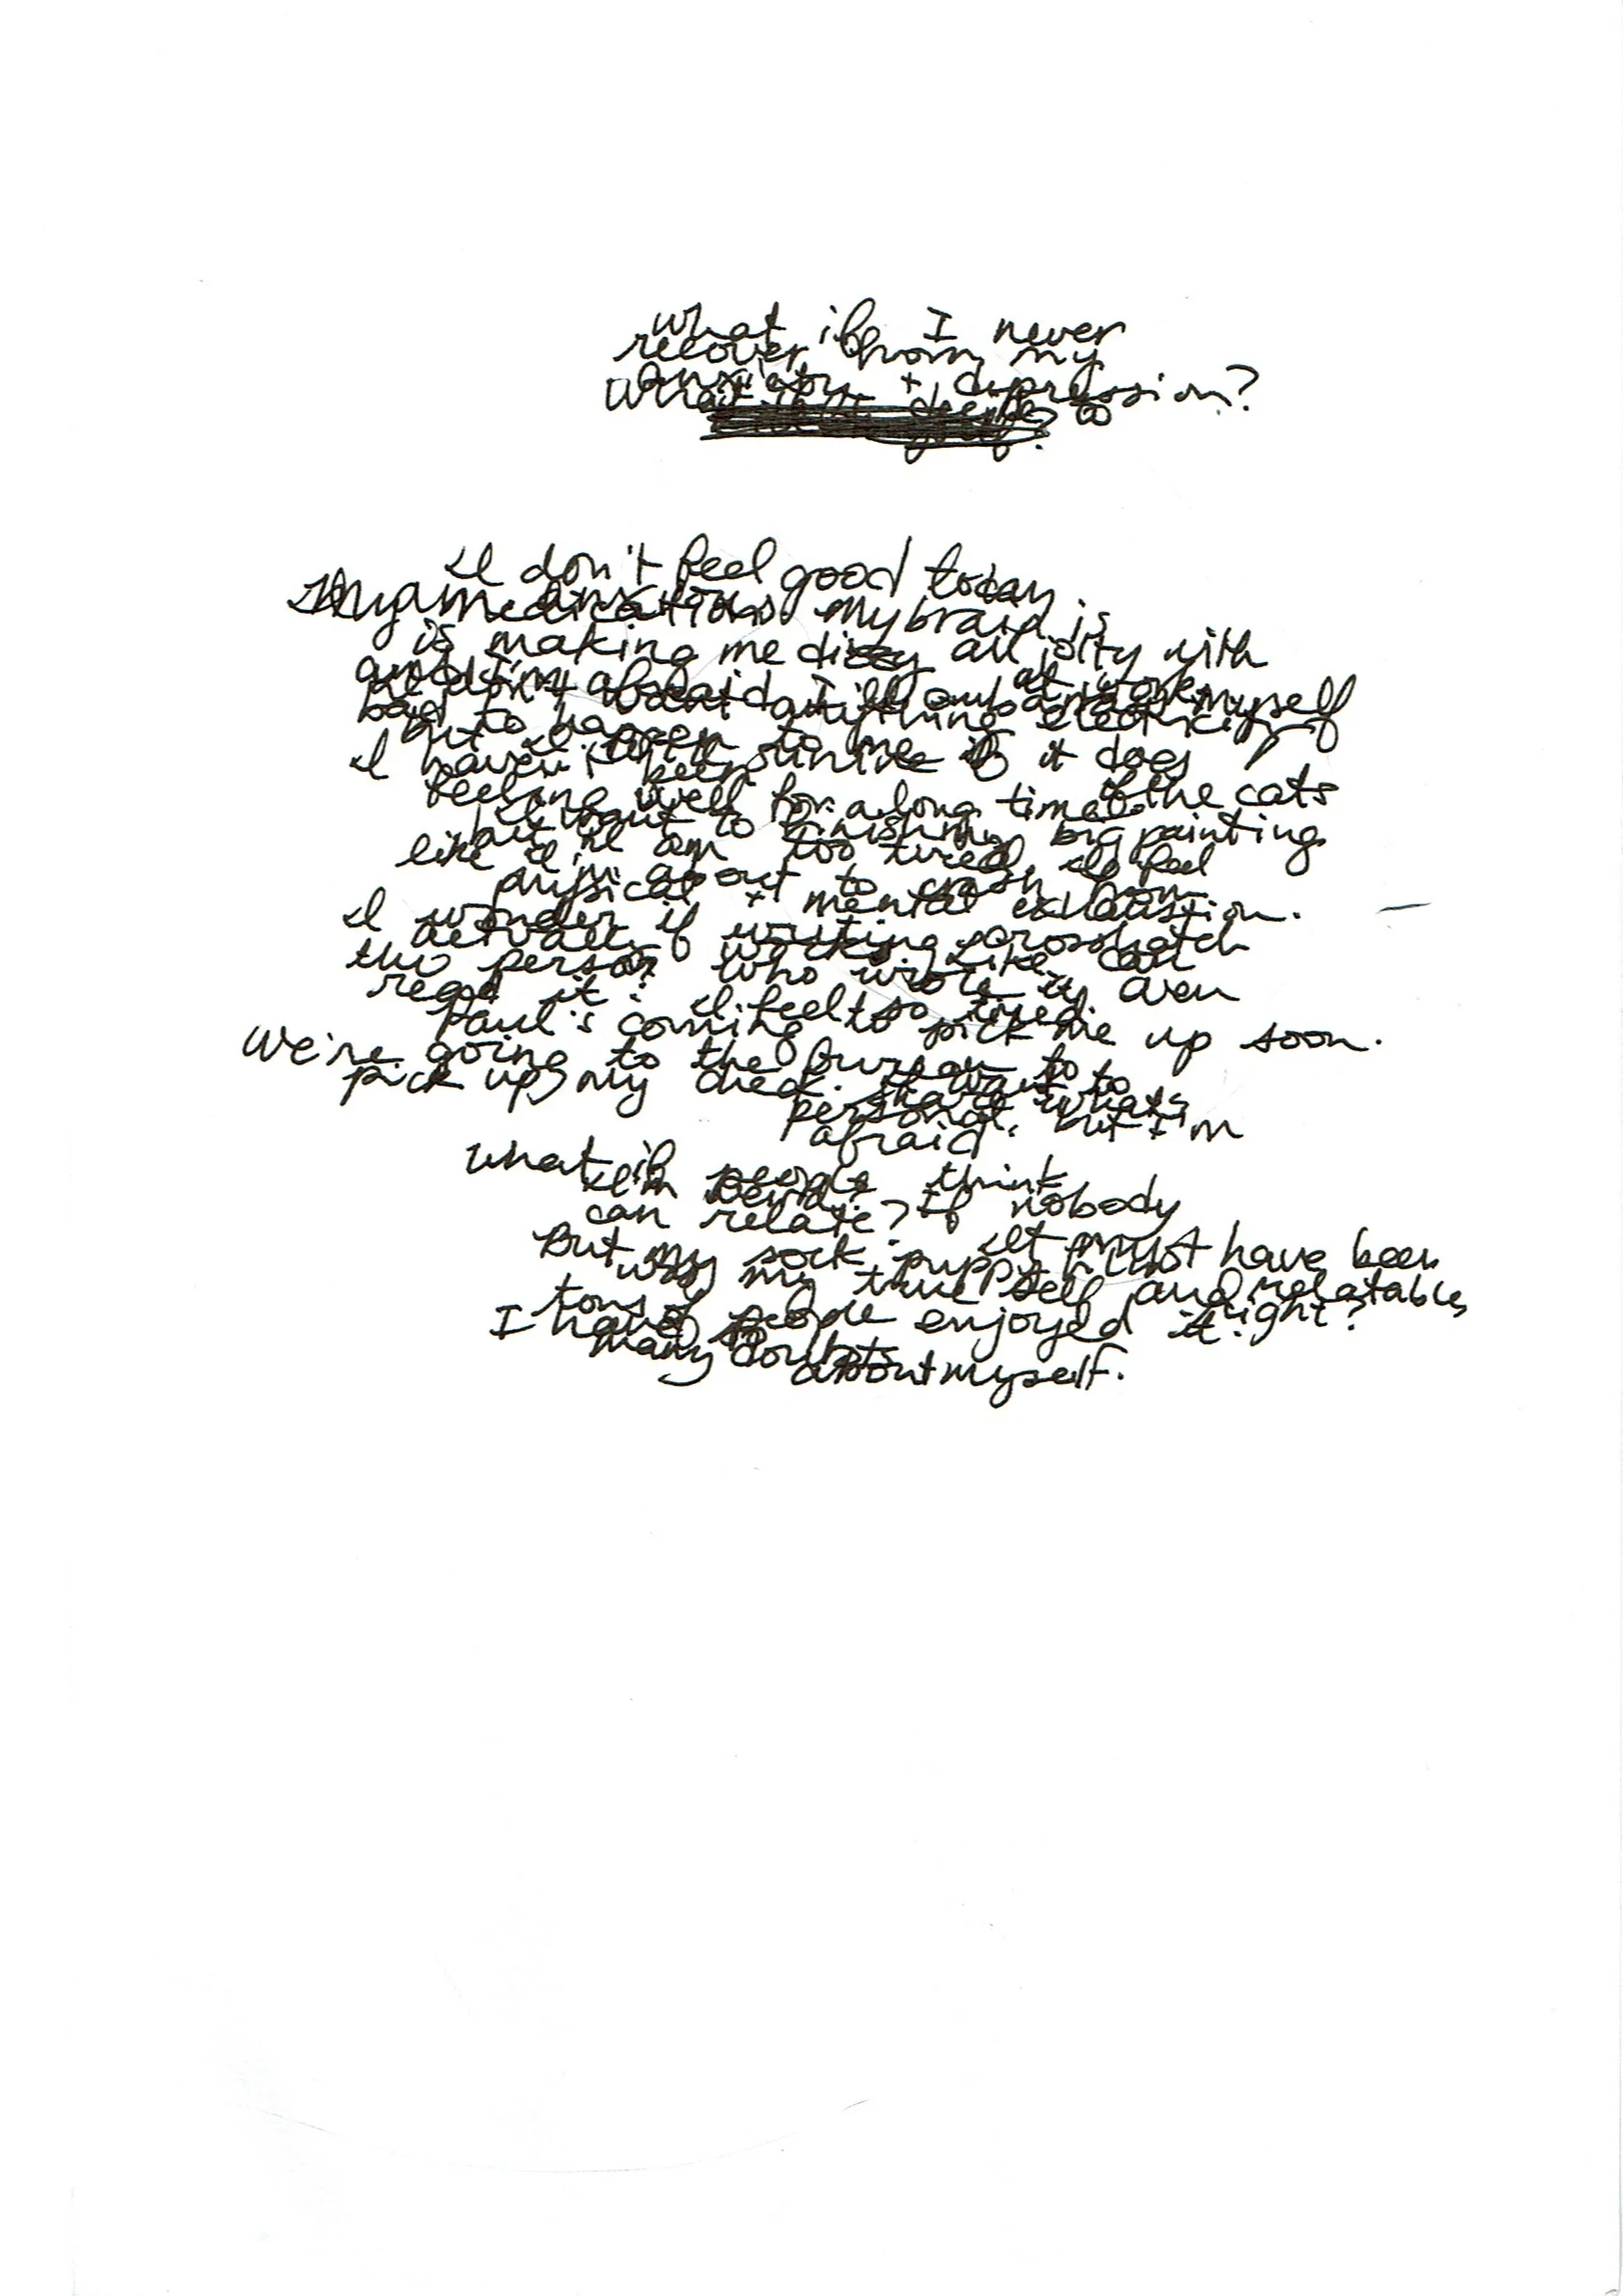 what if I never
recover from my
anxiety + depression?
What to
I don't feel good today.
My medication my brain is
is making me dizzy all jolty with
and I'm afraid I'll embarrass myself
at work
I don't want anything electricity
bad to happen to me if it does
I haven't been
feeling well for a long time. the cats
I want to finish my big painting
but I am too tired. I feel
like I'm about to crash from
physical + mental exhaustion.
I wonder if writing crosshatch
actually works. Like can
the person who wrote it even
read it? I feel so tired.
Paul's coming to pick me up soon.
We're going to the bureau to
pick up my check. I want to
share what's
personal but I'm
afraid.
what if people think
I'm weird? If nobody
can relate?
But my sock puppy It must have been
was my true self and relatable,
tons of people enjoyed it right?
I have so
many doubts
about myself.